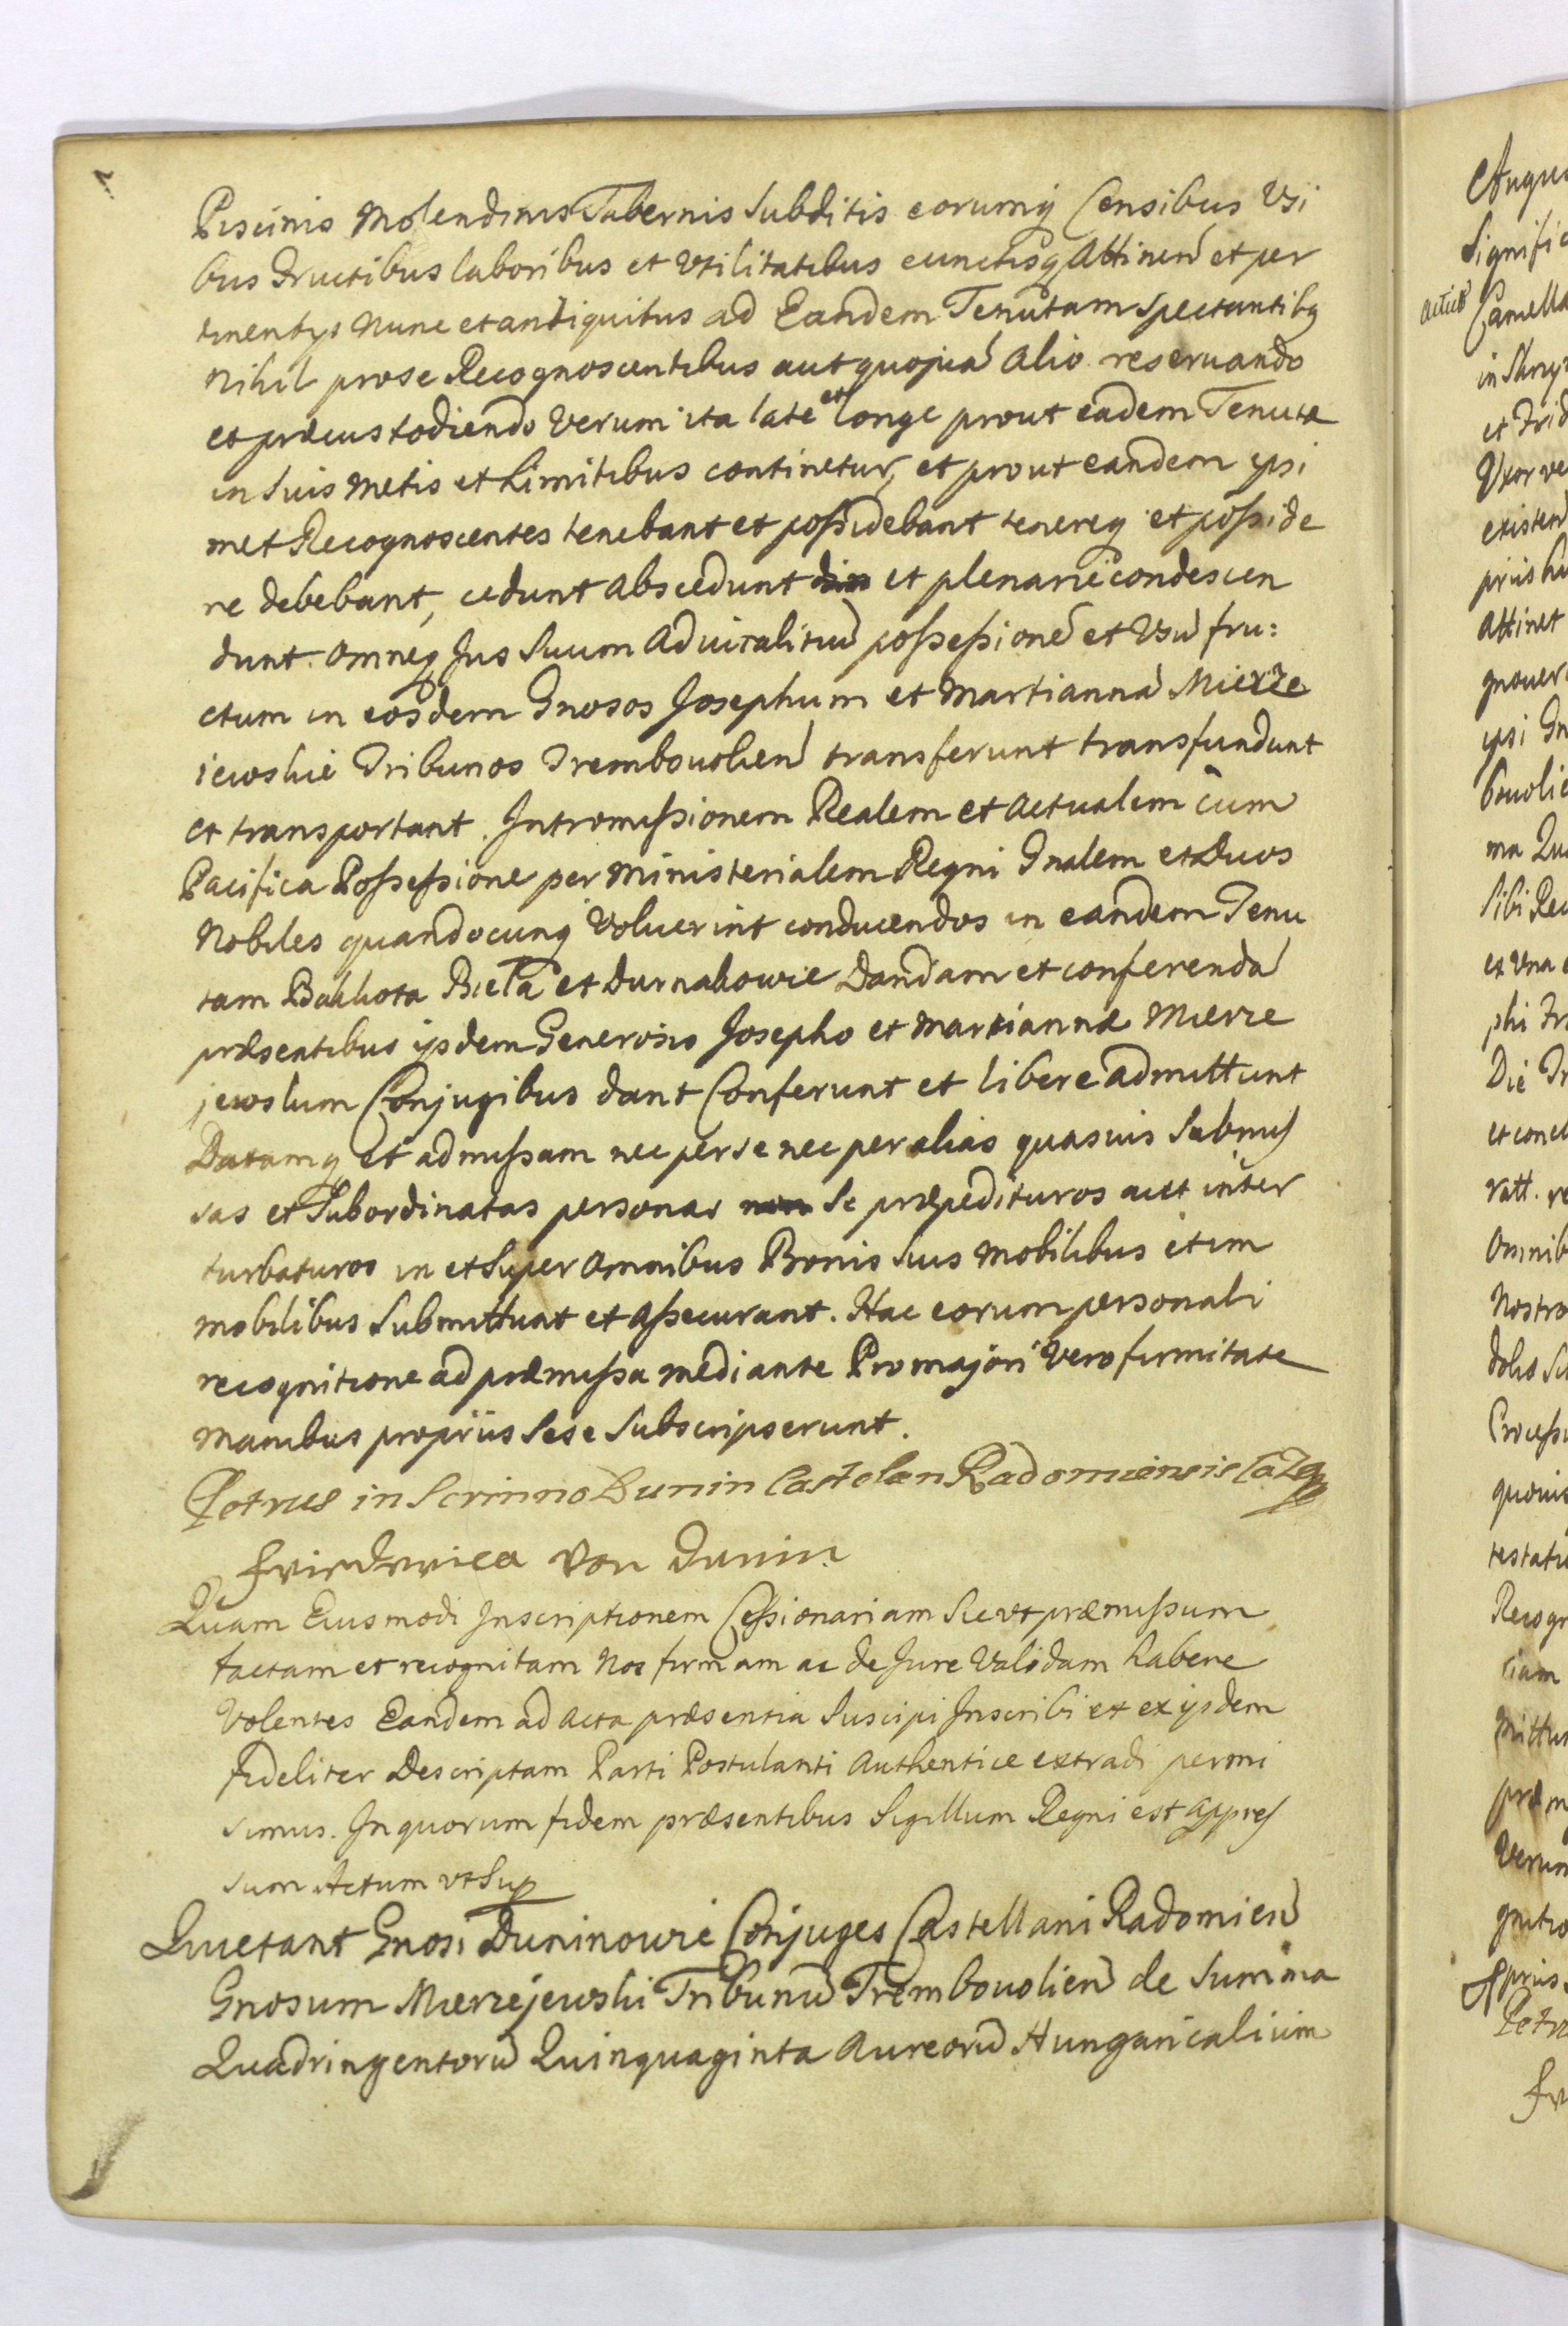 Piscinis Molendinis Tabernis Subditis eorumq Censibus Usi
bus Fructibus laboribus et Utilitatibus cunctisq Attinen et per
tinentijs Nunc et antiquitus ad Eandem Tenutam spectantibq
Nihil pro se Recognoscentibus aut quopia Alio reservando
et præcustodiendo Verum ita late et longe prout eadem Tenuta
in Suis Metis et Limitibus continetur, et prout eandem ipsi
met Recognoscentes tenebant et possidebant tenereq et posside
re debebant, cedunt Abscedunt et plenarie condescen
dunt. Omneq Jus Suum Advitalitiu possessione et Usu fru:
ctum in eosdem Gnosos Josephum et Martianna Mierze
iewskie Tribunos Trembovolien transferunt transfundunt
et transportant. Intromissionem Realem et Actualem cum
Pacifica Possessione per Ministerialem Regni Gnalem et Duos
Nobiles quandocunq Voluerint conducendos in eandem Tenu
tam Bakkota Bieła et Durnakowie Dandam et conferenda
præsentibus ijsdem Generosis Josepho et Martiannæ Mierze
jewskim Conjugibus dant Conferunt et libere admittunt
Datamq et admissam nec per se nec per alias quasuis Submis
sas et Subordinatas personas non Se præpedituros aut inter
turbaturos in et Super Omnibus Bonis Suis Mobilibus et im
mobilibus Submittunt et Assecurant. Hac eorum personali
recognitione ad præmissa mediante Pro majori Vero firmitate
Manibus propriis Sese Subscripserunt.
Petrus in Scrinno Dunin Castelan Radomiensis
Fridrica von Dunin
Quam Eiusmodi Inscriptionem Cessionariam Sic ut præmissum
factam et recognitam Nos firmam ac de Jure Validam habere
Volentes Eandem ad Acta præsentia Suscipi Inscribi et ex ijsdem
fideliter Descriptam Parti Postulanti Authentice extradi permi
simus. In quorum fidem præsentibus Sigillum Regni est appres
sum Actum ut Sup
Quietant Gnosi Duninowie Conjuges Castellani Radomien
Gnosum Mierzejewski Tribunu Trembovolien de Summa
Quadringentoru Quinquaginta Aureoru Hungaricalium